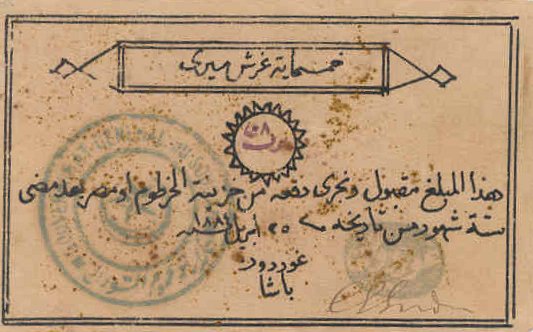 خمسماية غرش ميرى
هذا المبلغ مقبول وتجرى دفعه من خزينة الخرطوم او مصر بعد مضى
ستة شهور من تاريخه ٢٥ ابريل سنة ١٨٨٤
غوردون
باشا